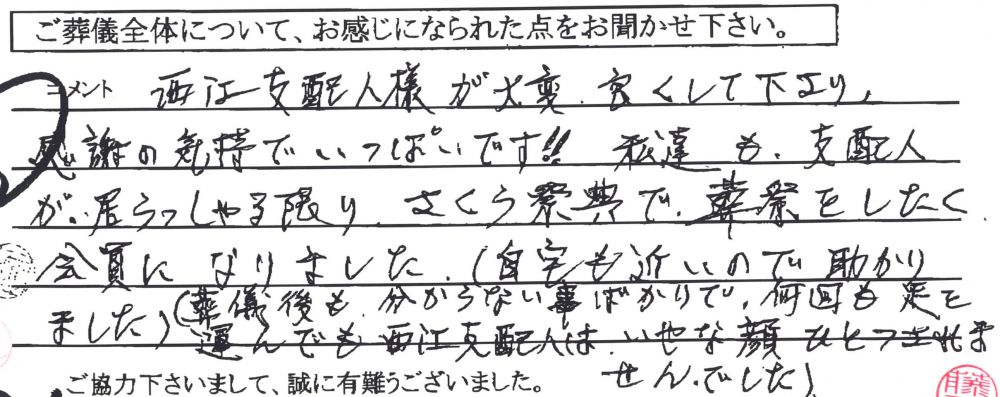 ご葬儀全体について、お感じになられた点をお聞かせ下さい。
コメント 西江支配人様が大変、良くして下さり、
感謝の気持でいっぱいです!! 私達も、支配人
が、居らっしゃる限り、さくら祭典で、葬祭をしたく、
会員になりました。(自宅も近いので助かり
ました)(葬儀後も、分からない事ばかりで、何回も足を
運んでも西江支配人は、いやな顔ひとつされま
せんでした)
ご協力下さいまして、誠に有難うございました。